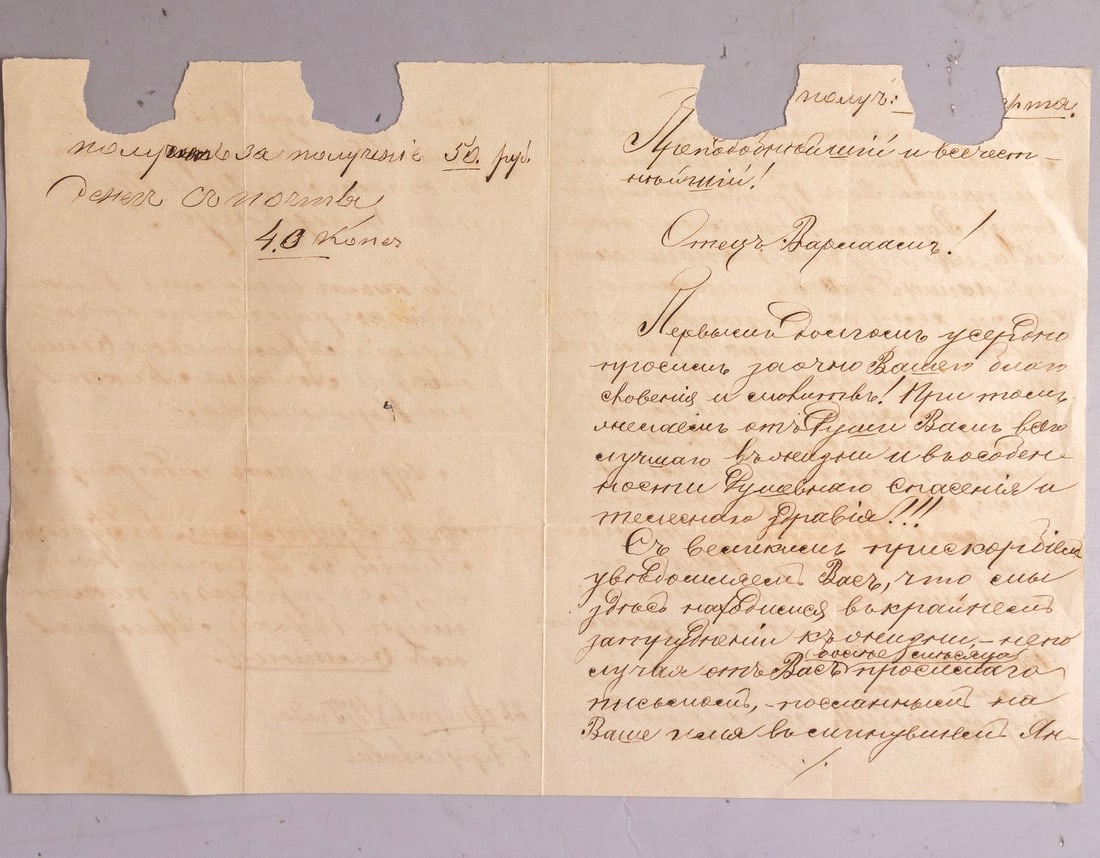 за полученіе 50. руб.
денегъ съ почты
40 Копе
получ: арта.
Преподобнѣйшій и всечест-
нѣйшій!
Отецъ Варлаамъ!
Первымъ долгомъ усердно
просимъ заочно Вашего благо
словенія и молитвъ! При томъ
желаемъ отъ Души Вамъ всего
лучшаго въ жизни и въ особен-
ности Душевнаго Спасенія и
телеснаго Здравія!!!
Съ великимъ прискорбіемъ
увѣдомляемъ Васъ, что мы
здѣсь находимся въ крайнемъ
затрудненіи къ жизни, - непо
лучая отъ Васъ (болѣе мѣсяца) просимаго
письмомъ, - посланнымъ на
Ваше имя въ минувшемъ Ян-